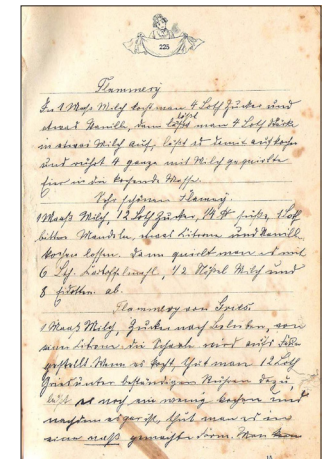 225
Flammerj
In 1 Maas Milch kocht man 4 Loth Zucker und
etwas Vanille, dann löst man 4 Loth Stärke
in etwas Milch auf, läßt es damit aufkochen
und rührt 4 ganze mit Milch gequirlte
Eier in die kochende Masse.
Sehr schönen Flamerj.
1 Maaß Milch, 12 Loth Zucker, 1/4 süße, 1 Loth
bittre Mandeln, etwas Citrone und Vanill
kochen lassen. dann quirlt man es mit
6 Kartoffelmehl, 1/2 Nößel Milch und
8 Eidotter ab.
Flammerj von Gries
1 Maas Milch, Zucke nach Belieben, von
einer Citrone die Schaale wird aufs Feuer
gestellt. Wenn es kocht, thut man 12 Loth
Gries unter beständigem Rühren dazu
läßt es noch ein wenig kochen und
nachdem es gar ist, thut man es in
eine naß gemachte Form. Man